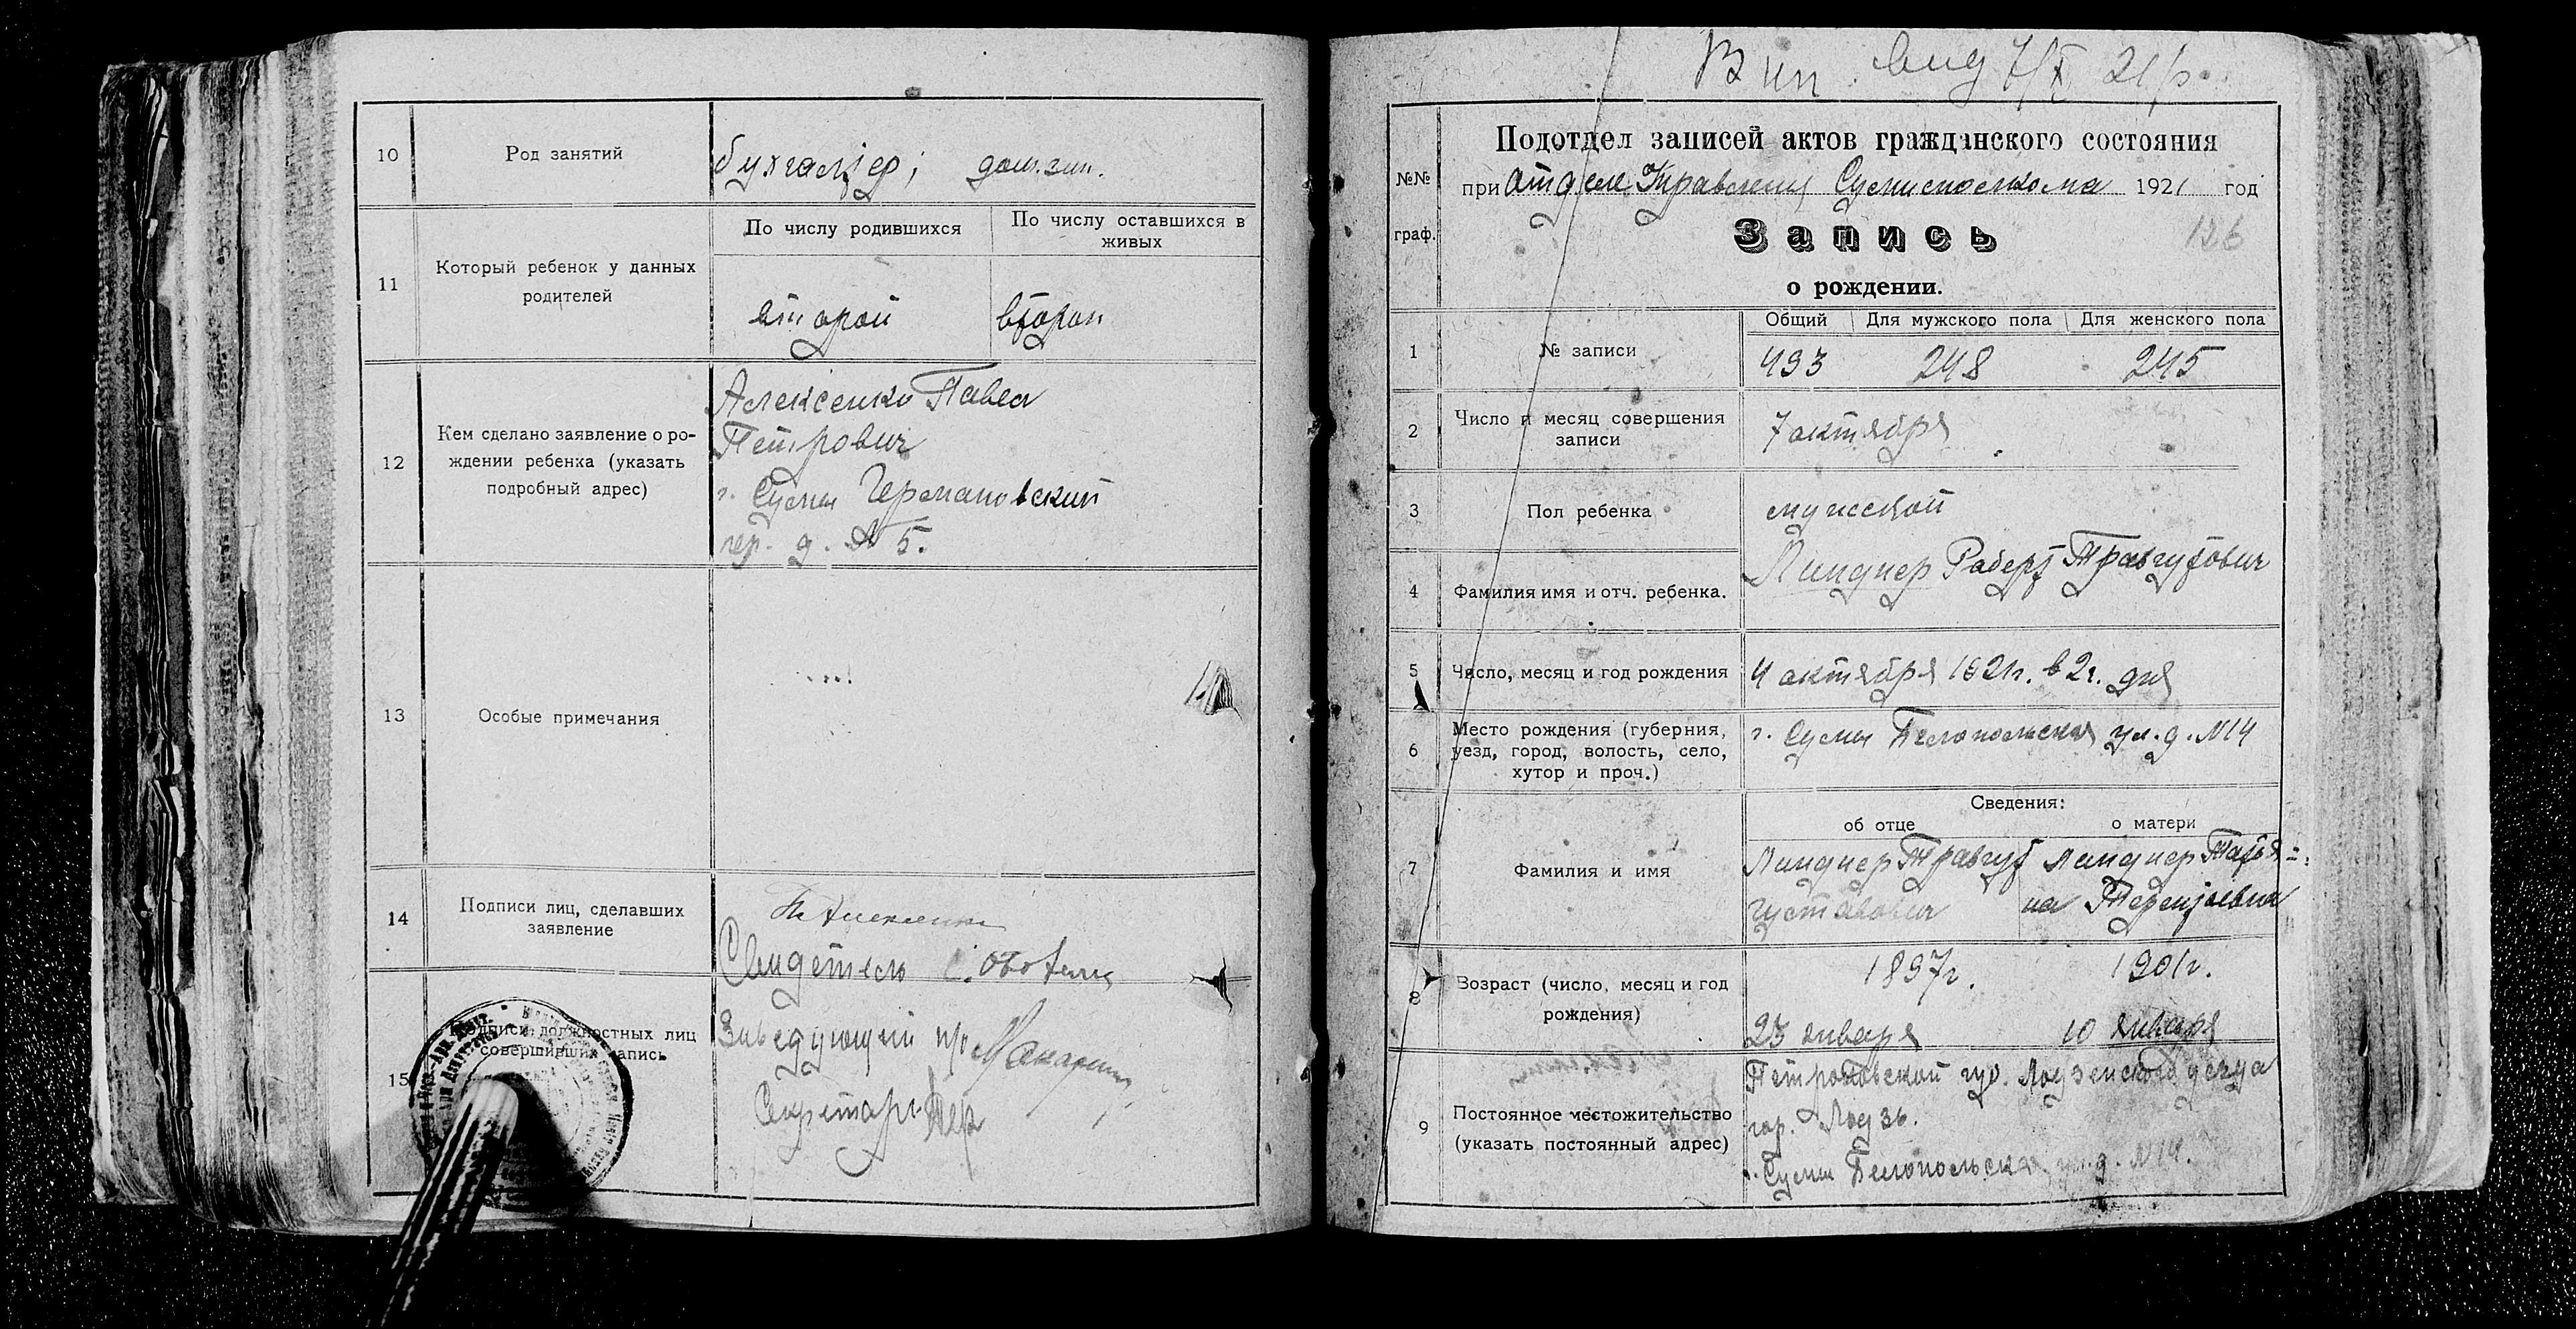 10
Род занятий
бухгалтер; дом. зан.
11
Который ребенок у данных
родителей
По числу родившихся
По числу оставшихся в
живых
второй
второй
12
Кем сделано заявление о ро-
ждении ребенка (указать
подробный адрес)
Алексенко Павел
Петрович
г. Сумы Германовский
пер. д. № 5.
13
Особые примечания
14
Подписи лиц, сделавших
заявление
Свидетель
15
Подписи должностных лиц
совершивших запись
Заведующий п/о
Секретарь
7/X 21 р.
№№
граф.
Подотдел записей актов гражданского состояния
при Отделе Управления Сумисполкома 1921 год
Запись
126
о рождении.
1
№ записи
Общий
Для мужского пола
Для женского пола
493
248
245
2
Число и месяц совершения
записи
7 октября
3
Пол ребенка
мужской
4
Фамилия имя и отч. ребенка.
Линднер Роберт Травгутович
5
Число, месяц и год рождения
4 октября 1921г. в 2 ч. дня
6
Место рождения (губерния,
уезд, город, волость, село,
хутор и проч.)
г. Сумы Белопольская ул. д. №14
7
Фамилия и имя
Сведения:
об отце
о матери
Линднер Травгут
Густавович
Линднер Татья=
на Терентьевна
8
Возраст (число, месяц и год
рождения)
1897г.
23 января
1901г.
10 января
9
Постоянное местожительство
(указать постоянный адрес)
Петроковской губ. Лодзенского уезда
гор. Лодзь.
г. Сумы Белопольская ул. д. №14.